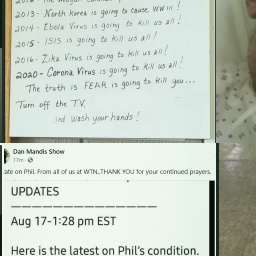 2013 - North Korea is going to cause WW III!
2014 - Ebola Virus is going to kill us all!
2015 - ISIS is going to kill us all!
2016 - Zika Virus is going to kill us all!
2020 - Corona Virus is going to kill us all!
The truth is FEAR is going to kill you...
Turn off the TV.
and wash your hands!
Dan Mandis Show
17m
ate on Phil. From all of us at WTN..THANK YOU for your continued prayers.
UPDATES
Aug 17-1:28 pm EST
Here is the latest on Phil's condition.